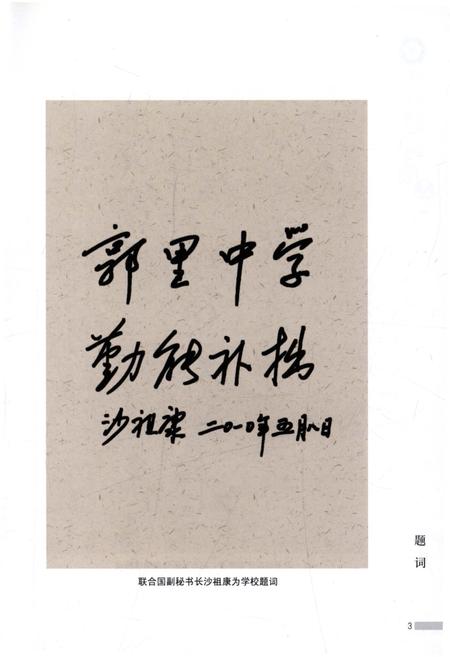 郭里中学
勤能补拙
沙祖康 二〇一〇年五月八日
联合国副秘书长沙祖康为学校题词
题词
3